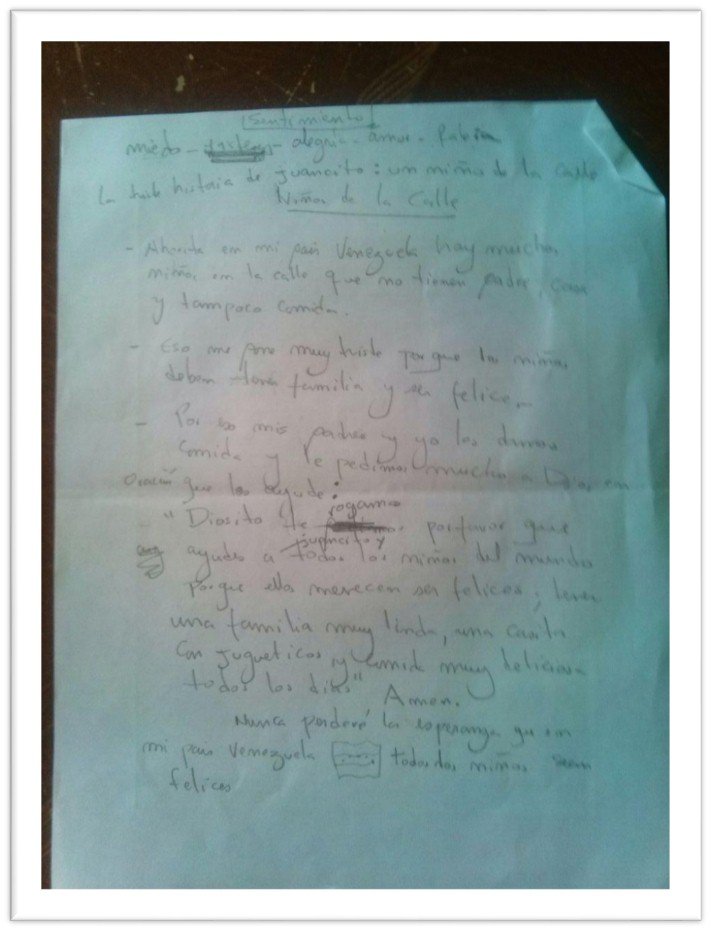 Sentimiento
miedo - tristeza - alegria - amor - Fabia
La triste historia de juancito: un niño de la calle
Niños de la Calle
- Ahorita en mi país Venezuela hay muchos
niños en la calle que no tienen padre, casa
y tampoco comida.
- Eso me pone muy triste porque los niños
deben tener familia y ser felice.
- Por eso mis padres y yo les damos
comida y le pedimos mucho a Dios en
Oración que los ayude:
rogamos
"Diosito te porfavor que
juancito y
ayudes a todos los niños del mundo
porque ellos merecen ser felices, tener
una familia muy linda, una casita
con jugueticos y comida muy deliciosa
todos los dias" Amen.
Nunca perderé la esperanza que en
mi pais Venezuela todos los niños sean
felices